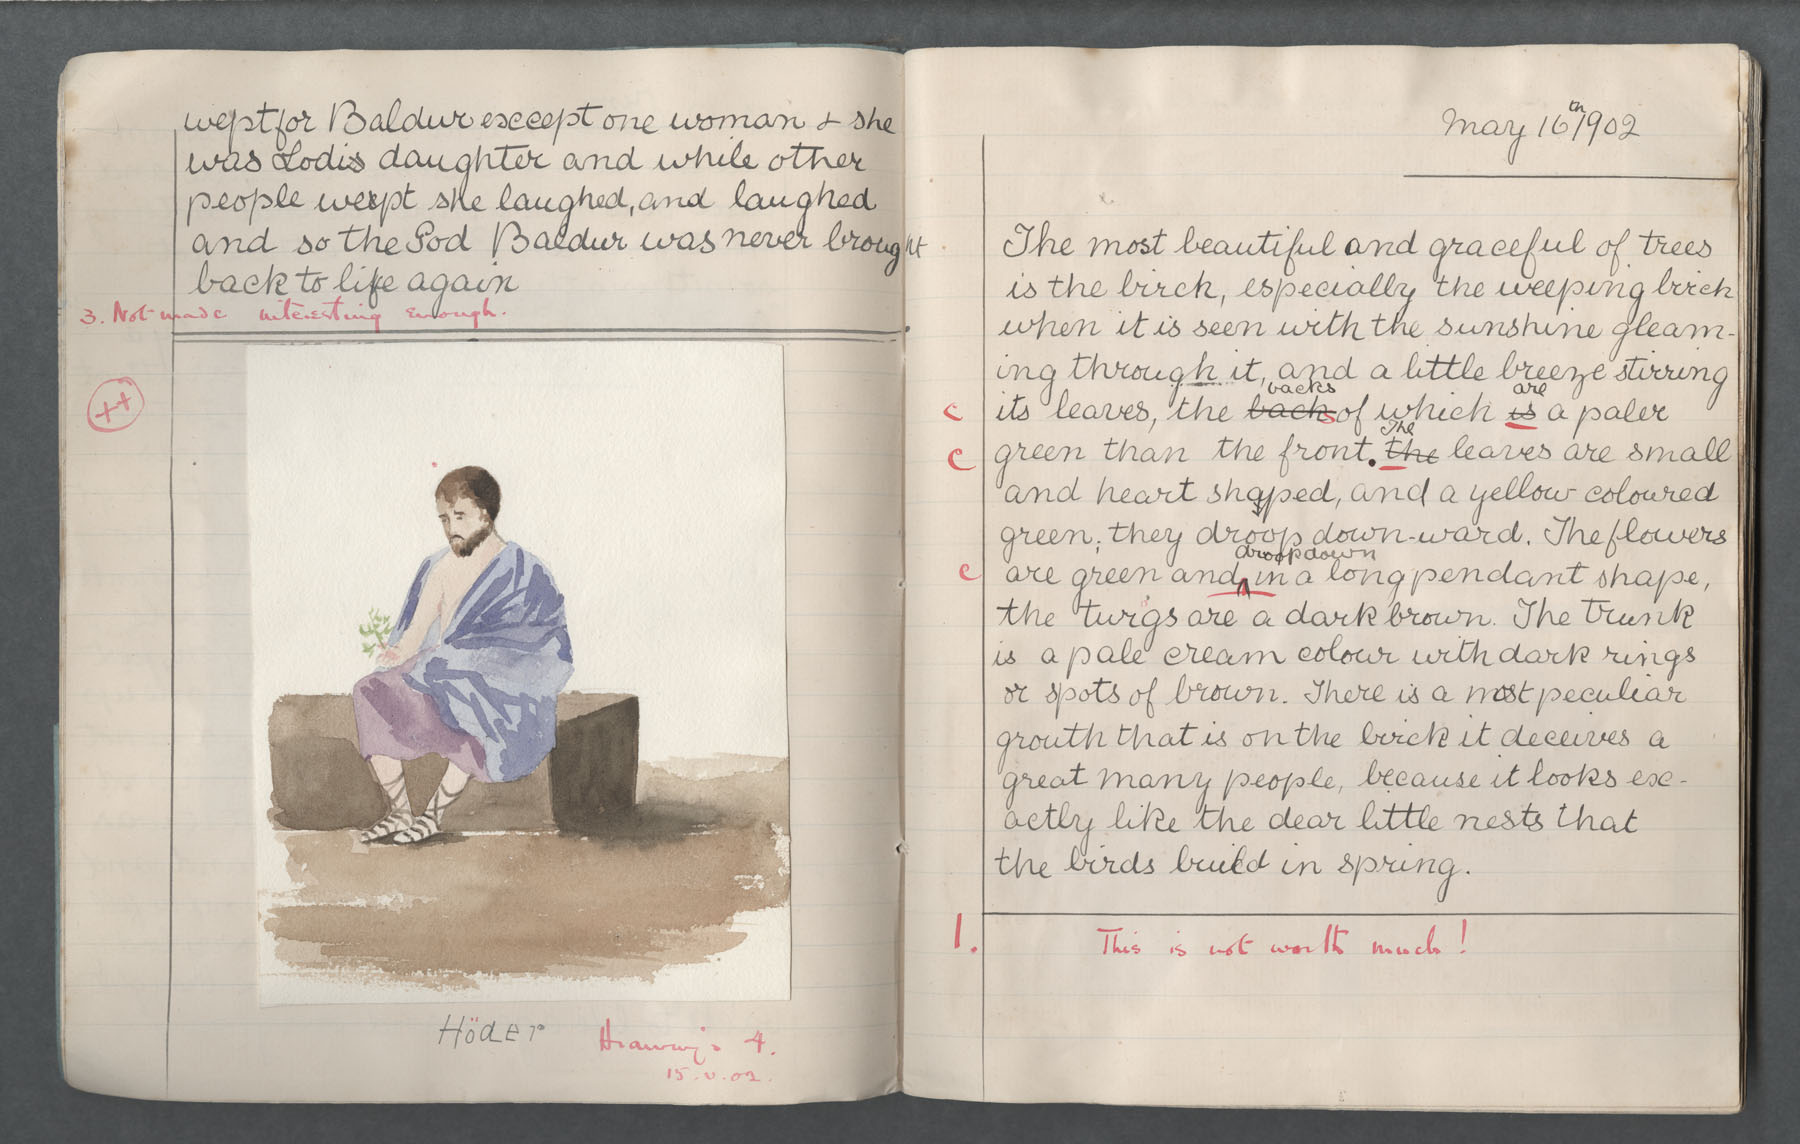 wept for Baldur except one woman & she
was Lodis daughter and while other
people wept she laughed, and laughed
and so the God Baldur was never brought
back to life again
3. Not made interesting enough.
++
Höder
Drawing 4.
15.V.02.
May 16th 1902
The most beautiful and graceful of trees
is the birch, especially the weeping birch
when it is seen with the sunshine gleam-
ing through it, and a little breeze stirring
backs are
c its leaves, the backs of which is a paler
The
c green than the front. the leaves are small
and heart shaped, and a yellow coloured
green; they droop down-ward. The flowers
droop down
c are green and in a long pendant shape,
the twigs are a dark brown. The trunk
is a pale cream colour with dark rings
or spots of brown. There is a most peculiar
grouth that is on the birch it deceives a
great many people, because it looks ex-
actly like the dear little nests that
the birds build in spring.
1. This is not worth much!